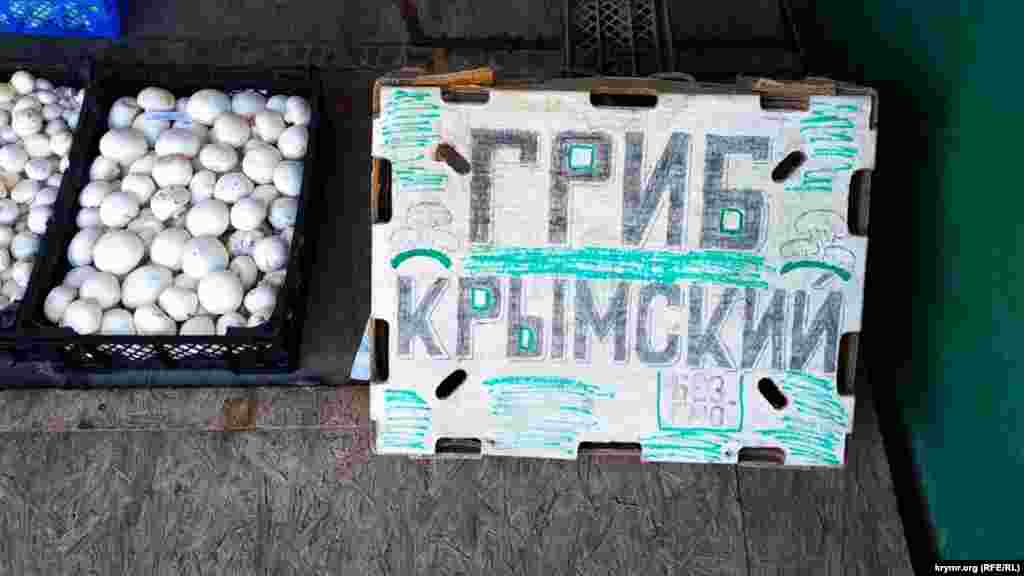 ГРИБ
КРЫМСКИЙ
krymr.org (RFE/RL)